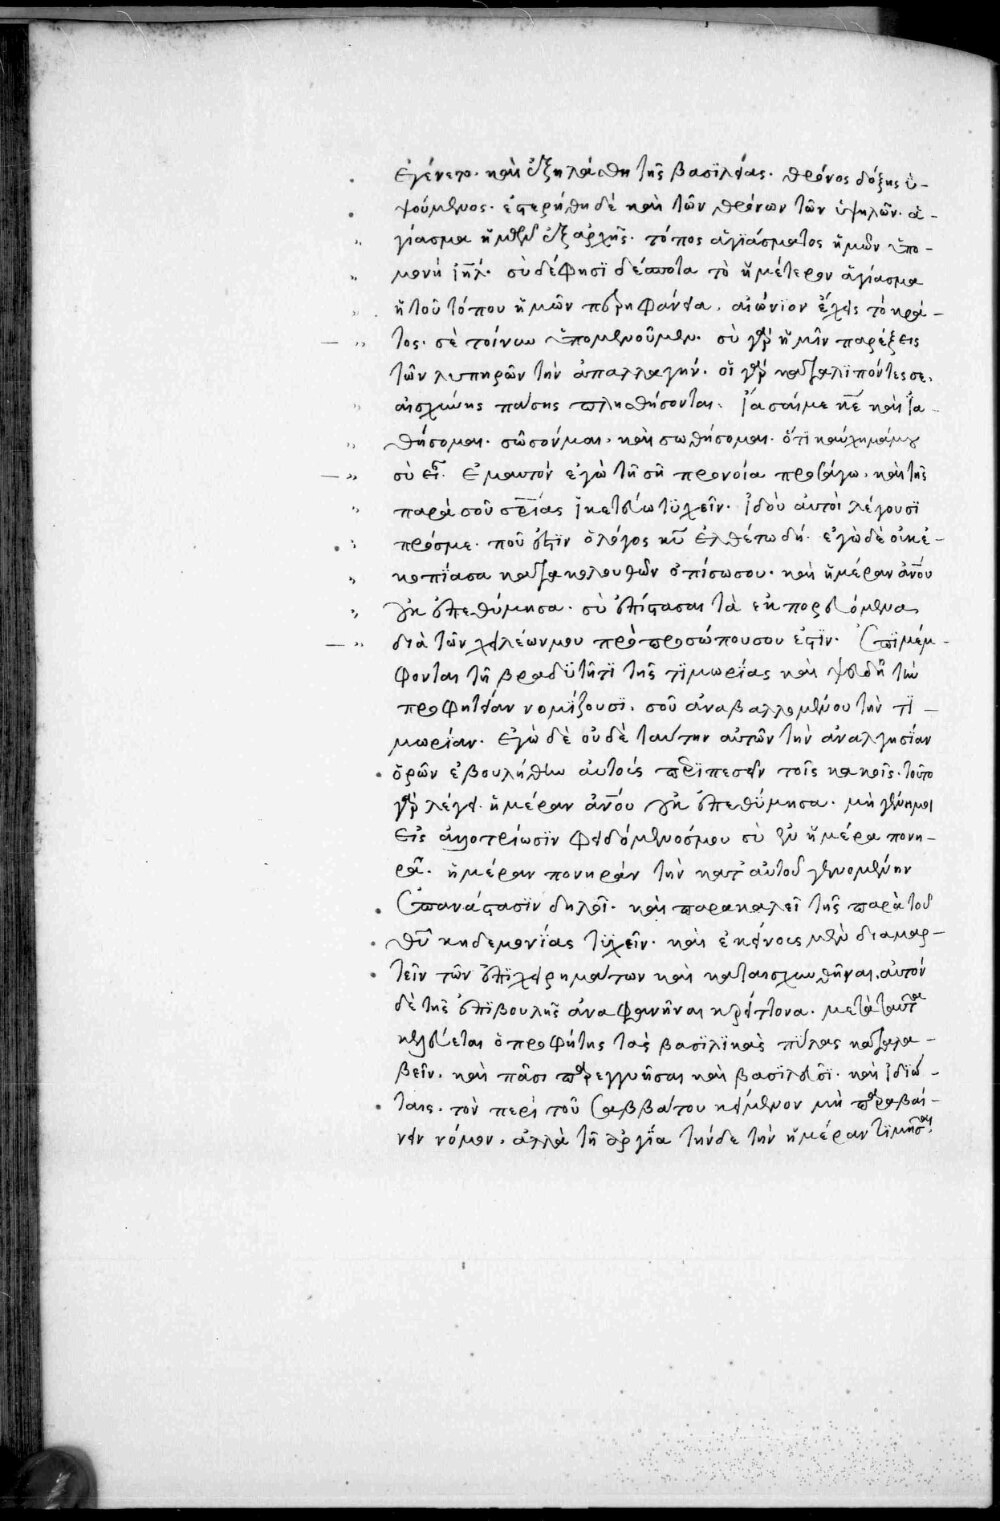 ἐγένετο· καὶ ἐξηλάθη τῆς βασιλείας· θρόνος δόξης ὑ-
ψούμενος· ἐστερήθη δὲ καὶ τῶν θρόνων τῶν ὑψηλῶν· ἁ-
γίασμα ἡμῶν ἐξαρχῆς· τόπος ἁγιάσματος ἡμῶν ὑπο-
μονὴ ἰηλ· σὺ δέ φησι δέσποτα τὸ ἡμέτερον ἁγίασμα
ἡ τοῦ τόπου ἡμῶν περιφάνεια· αἰώνιον ἔχεις τὸ κρά-
τος· σὲ τοίνυν ὑπομενοῦμεν· σὺ γὰρ ἡμῖν παρέξεις
τῶν λυπηρῶν τὴν ἀπαλλαγήν· οἱ γὰρ καταλιπόντες σε,
αἰσχύνης πάσης πλησθήσονται· ἴασαί με κε καὶ ἰα-
θήσομαι· σῶσόν με, καὶ σωθήσομαι· ὅτι καύχημά μου
σὺ εἶ· ἐμαυτὸν ἐγὼ τῇ σῇ προνοία προσάγω, καὶ τῆς
παρὰ σοῦ σριας ἱκετεύω τυχεῖν· ἰδοὺ αὐτοὶ λέγουσι
πρός με· ποῦ ἐστιν ὁ λόγος κυ ἐλθέτω δή· ἐγὼ δὲ οὐκ ἐ-
κοπίασα κατακολουθῶν ὀπίσω σου· καὶ ἡμέραν ἀνου
οὐκ ἐπεθύμησα· σὺ ἐπίστασαι τὰ ἐκπορευόμενα
διὰ τῶν χειλέων μου πρὸ προσώπου σου ἐστιν· ἐπιμέμ-
φονται τῇ βραδυτῆτι τῆς τιμωρίας καὶ ψευδῆ τὴν
προφητείαν νομίζουσι, σοῦ ἀναβαλλομένου τὴν τι-
μωρίαν· ἐγὼ δὲ οὐδὲ ταύτην αὐτῶν τὴν ἀναλγησίαν
ὁρῶν ἐβουλήθην αὐτοὺς περιπεσεῖν τοῖς κακοῖς· τοῦτο
γὰρ λέγει ἡμέραν ἀνου οὐκ ἐπεθύμησα· μὴ γένη μοι
εἰς ἀλλοτρίωσιν φειδόμενός μου σὺ ἐν ἡμέρα πονη-
ρᾶ· ἡμέραν πονηρὰν τὴν κατ' αὐτοῦ γενομένην
ἐπανάστασιν δηλοῖ· καὶ παρακαλεῖ τῆς παρὰ τοῦ
θυ κηδεμονίας τυχεῖν· καὶ ἐκείνους μὲν διαμαρ-
τεῖν τῶν ἐπιχειρημάτων καὶ καταισχυνθῆναι, αὐτὸν
δὲ τῆς ἐπιβουλῆς ἀναφανῆναι κρείττονα· μετὰ ταῦτα
κελεύεται ὁ προφήτης τὰς βασιλικὰς πύλας καταλα-
βεῖν· καὶ πᾶσι παρεγγυῆσαι καὶ βασιλεῦσι· καὶ ἰδιώ-
ταις· τὸν περὶ τοῦ σαββάτου κείμενον μὴ παραβαί-
νειν νόμον· ἀλλὰ τῇ ἀργία τήνδε τὴν ἡμέραν τιμῆσαι